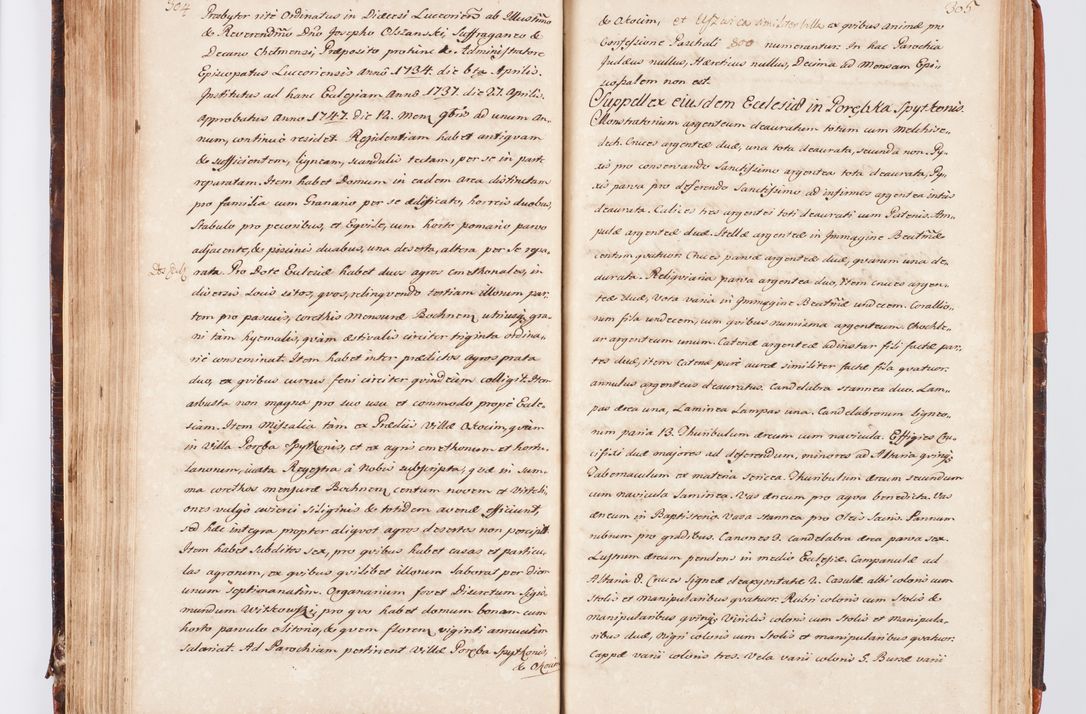 304
Presbyter ritè Ordinatus in Diæcesi Luccorien̄ ab Illustri̅mo
& Reverendi̅mo Dn̄o Josepho Olszanski, Suffraganeo &
Decano Chelmensi, Præposito protunc & Administratore
Episcopatus Luccoriensis Annô 1734. die 6ta Aprilis.
Institutus ad hanc Ecclesiam Annô 1737. die 27. Aprilis.
Approbatus Anno 1747. die 12. Men 9bris ad unum An-
num, continuè residet. Residentiam habet antiquam
& sufficientem, ligneam, scandulis tectam, per se in parte
reparatam. Item habet Domum in eadem Area distinctam
pro familia cum Granario per se ædificato, horreis duobus,
Stabulo pro pecoribus, et Equile, cum horto pomario parvo
adjacente, & piscinis duabus, una deserta, altera per se repa-
rata. Pro Dote Ecclesiæ habet duos agros cmethonales, in
diversis Locis sitos, quos, relinquendo tertiam illorum par-
tem pro pascuis, corethis mensuræ Bochnen̄ utriusq; gra-
ni tàm hyemalis, quàm æstivalis circiter triginta ordina-
riè conseminat. Item habet inter prædictos agros prata
duo, ex quibus currus feni circiter quindecim colligit. Item
arbusta non magna pro suo usu et commodo propè Eccle-
siam. Item Missalia tàm ex Prædiis Villæ Otocim, quàm
in Villa Poręba Spytkonis, et ex agris cmethonum et hortu-
lanorum, iuxta Regestra à Nobis subscripta, quæ in sum-
ma corethos mensuræ Bochnen̄ centum novem et Virteli-
ones vulgò cwierci siliginis & totidem avenæ efficiunt,
sed hæc integra propter aliquot agros desertos non percipit.
Item habet Subditos sex, pro quibus habet casas et particu-
las agrorum, ex quibus quilibet illorum laborat per diem
unum septimanatim. Organarium fovet Discretum Sigis-
mundum Witkowski, pro quo habet domum bonam cum
horto parvulo olitorio, & quem floren̄ viginti annuatim
salariat. Ad Parochiam pertinent Villæ Poręba Spytkonis,
& Otocim
305
& Otocim, et
ex quibus animæ pro
Confessione Paschali 800 numerantur. In hac Parochia
Judæus nullus, Hæreticus nullus, Decima ad Mensam Epi-
scopalem non est.
Suppellex eiusdem Ecclesiæ in Porębka Spytkonis.
Monstratorium argenteum deauratum totum cum Melchise-
dech. Cruces argenteæ duæ, una tota deaurata, secunda non. Py-
xis pro conservando Sanctissimo argentea tota deaurata, Py-
xis parva pro deferendo Sanctissimo ad infirmos argentea intùs
deaurata. Calices tres argentei toti deaurati cum Patenis. Am-
pulæ argenteæ duæ. Stellæ argenteæ in Immagine Beati̅mæ
centum quatuor. Cruces parvæ argenteæ duæ, quarum una de-
aurata. Reliquiaria parva argentea duo, Item cruces argen-
teæ duæ, Vota varia in Immagine Beati̅mæ undecem. Corallio-
rum fila undecem, cum quibus numisma argenteum. Chochle-
ar argenteum unum. Catenæ argenteæ adinstar fili factæ par-
tes duæ, item Catenæ puræ aureæ similiter factæ fila quatuor.
annulus argenteus deauratus. Candelabra stannea duo, Lam-
pas ærea una, Laminea Lampas una. Candelabrorum ligneo-
rum paria 13. Thuribulum æreum cum navicula. Effigies Cru-
cifixi duæ majores ad deferendum, minores ad Altaria quinq;
Tabernaculum ex materia sericea. Thuribulum æreum secundum
cum navicula laminea. Vas æreum pro aqua benedicta. Vas
æreum in Baptisterio. Vasa stannea pro Oleis Sacris. Pannum
rubrum pro gradibus. Canones 9. candelabra ærea parva sex.
Lustrum æreum pendens in medio Ecclesiæ. Campanulæ ad
Altaria 8. Cruces ligneæ deargentatæ 2. Casulæ albi coloris cum
Stolis et manipularibus quatuor. Rubri coloris cum Stolis &
manipularibus quinq; Viridis coloris cum Stolis et manipula-
ribus duæ, nigri coloris cum Stolis et manipularibus quatuor.
Cappæ varii coloris tres. Vela varii coloris 5. Bursæ varii